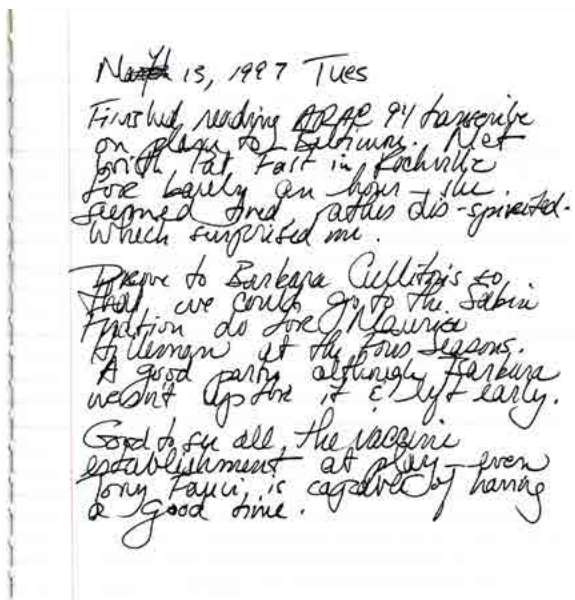 13, 1997 Tues
Finished reading ARAC 94 transcribe
on plane to Baltimore. Met
with Pat Fast in Rockville
for barely an hour - she
seemed tired, rather dis-spirited.
Which surprised me.
Drove to Barbara Culliton's so
that we could go to the Sabin
do for Maurice
Hilleman at the Four Seasons.
A good party although Barbara
wasn't up for it & left early.
Good to see all the vaccine
establishment at play - even
Tony Fauci, is capable of having
a good time.